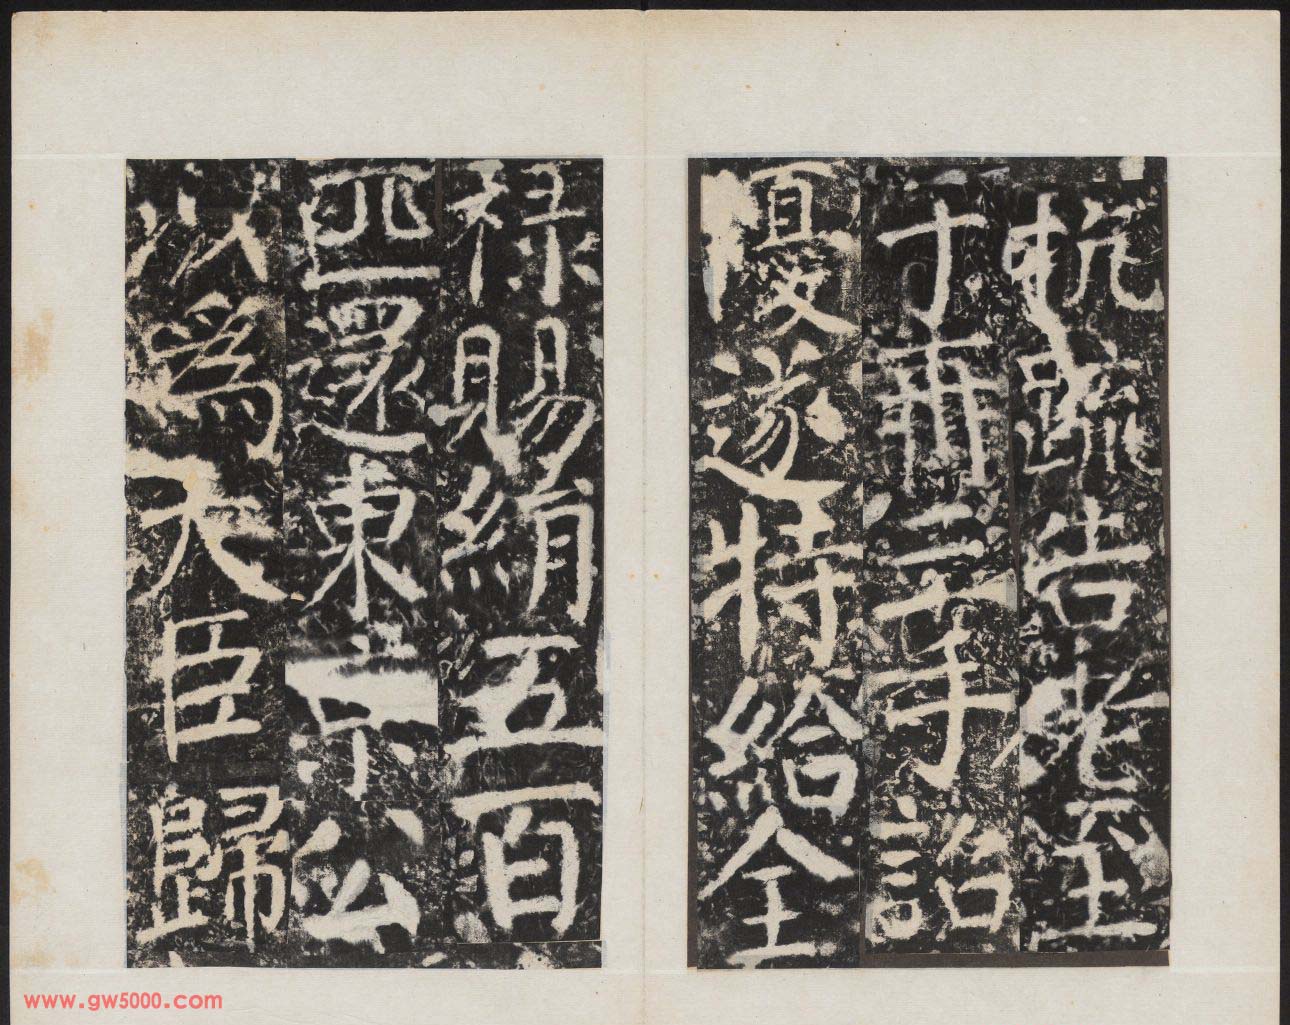 抗疏告老至
于再三手詔
優遂特給全
祿賜絹五百
匹還東京公
以爲大臣歸
www.gw5000.com